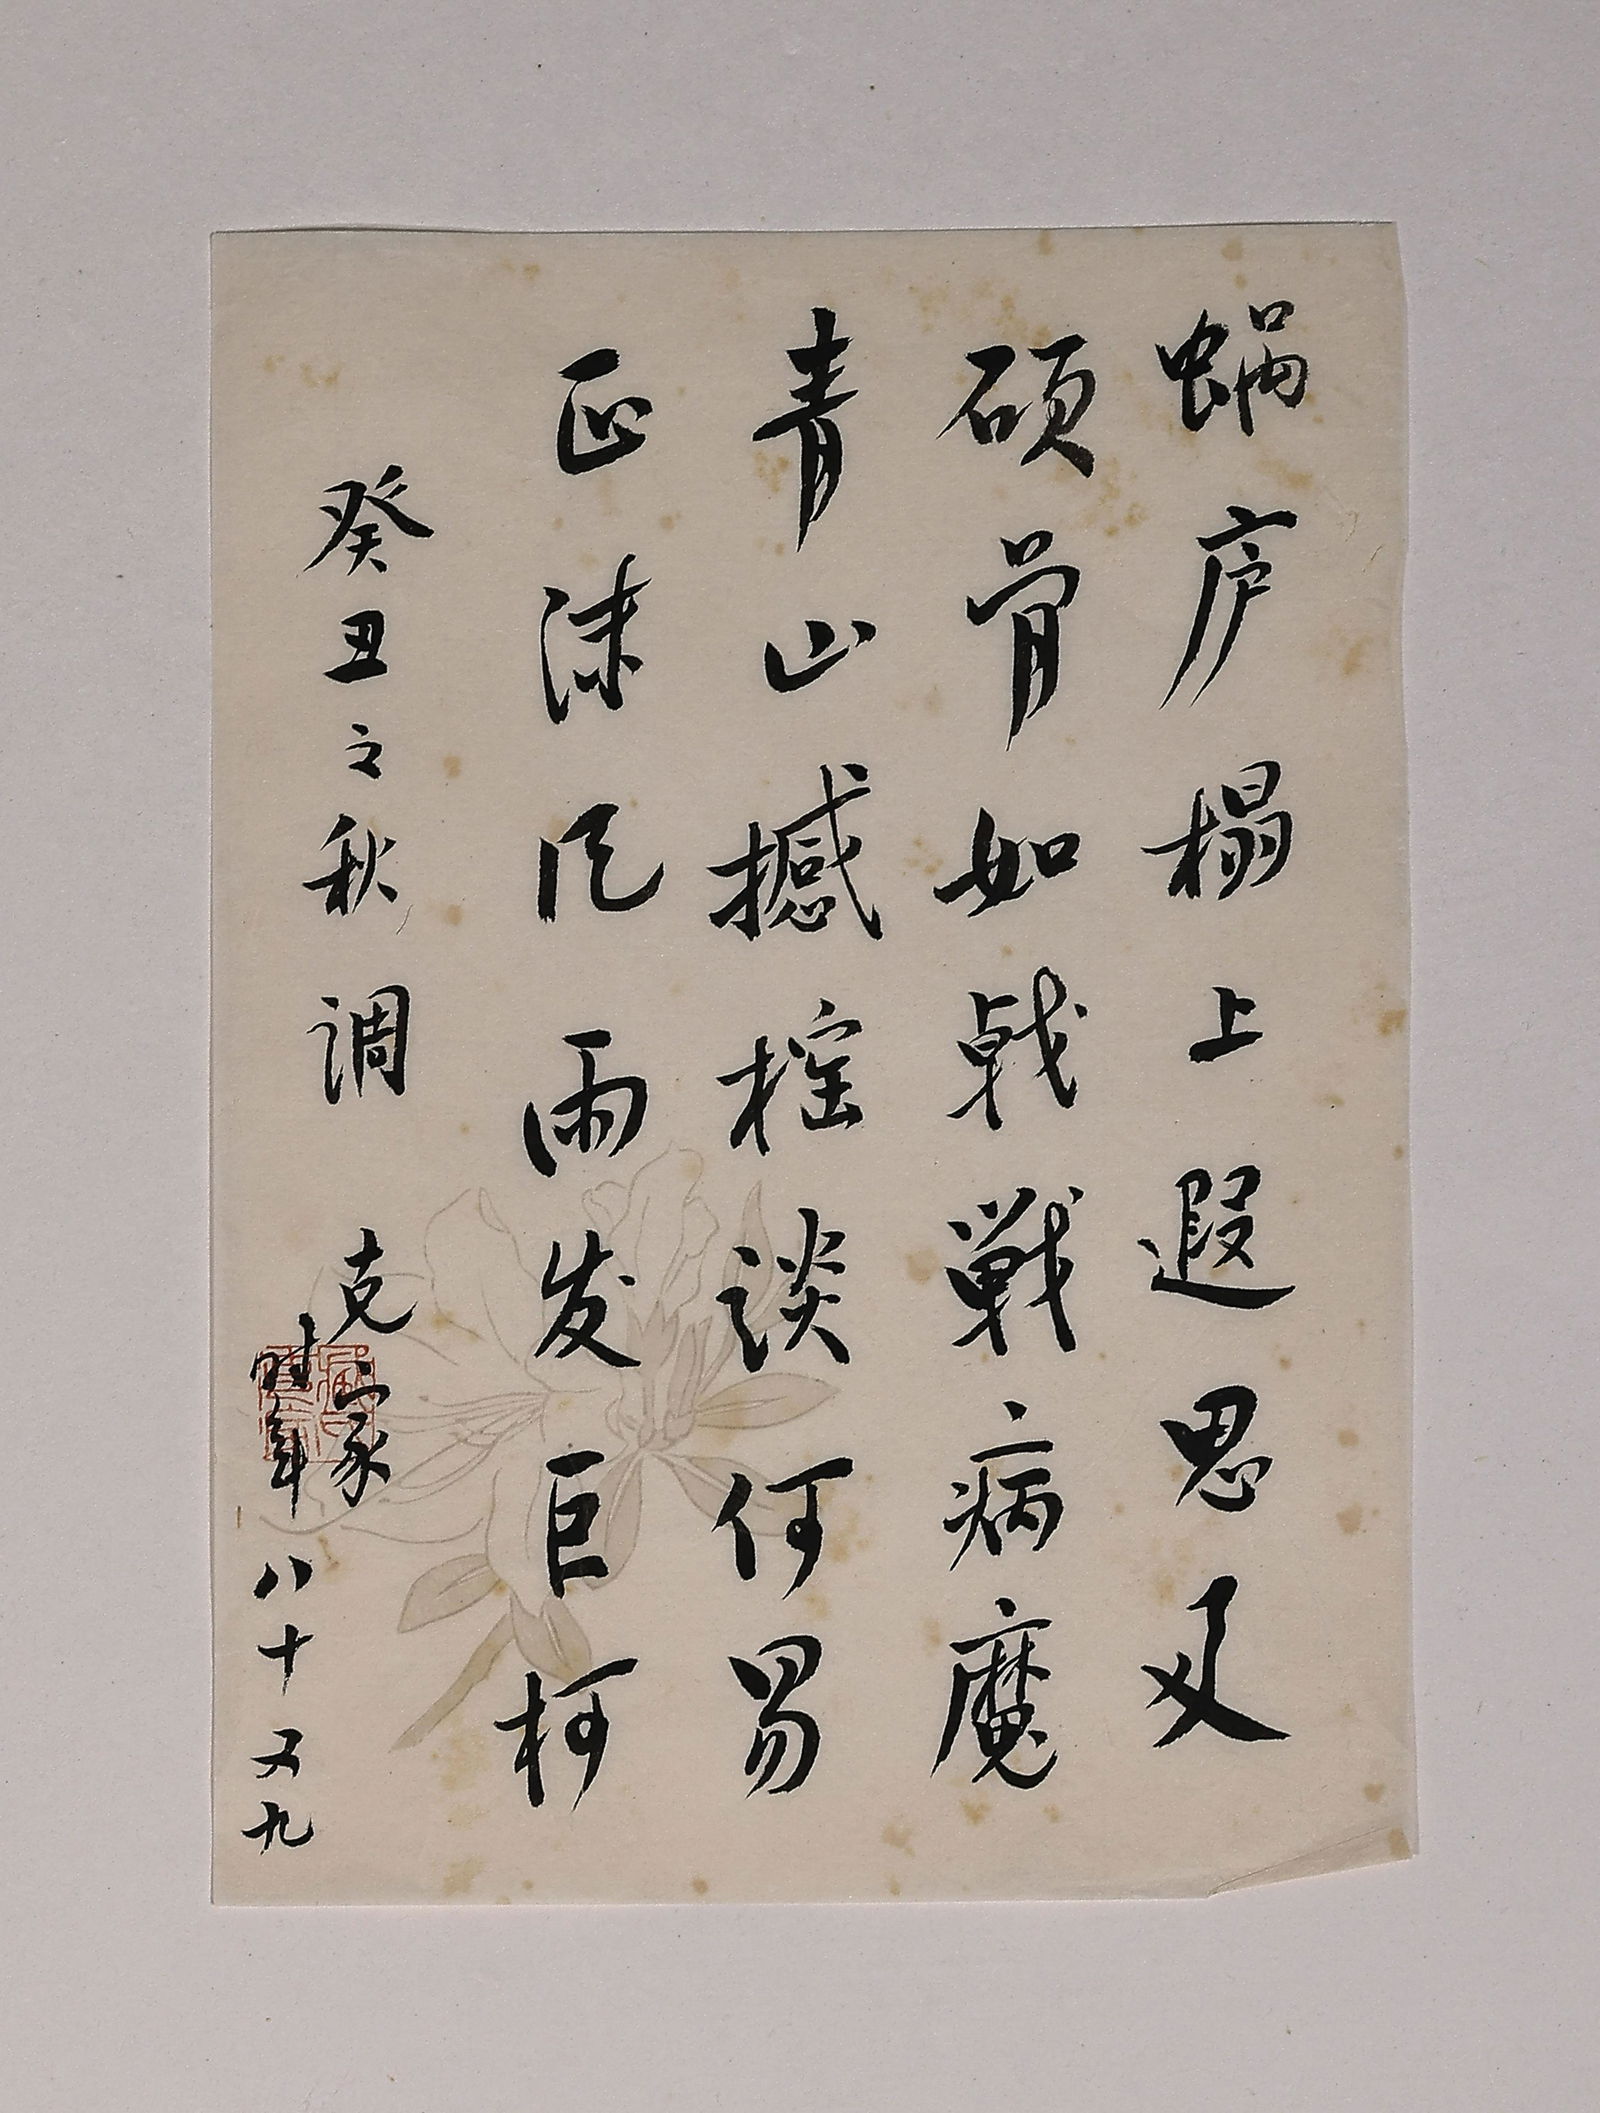 蜗庐榻上遐思及
硕骨如戟战病魔
青山撼摇谈何易
正沐风雨发巨柯
癸丑之秋调 克家
时年八十又九